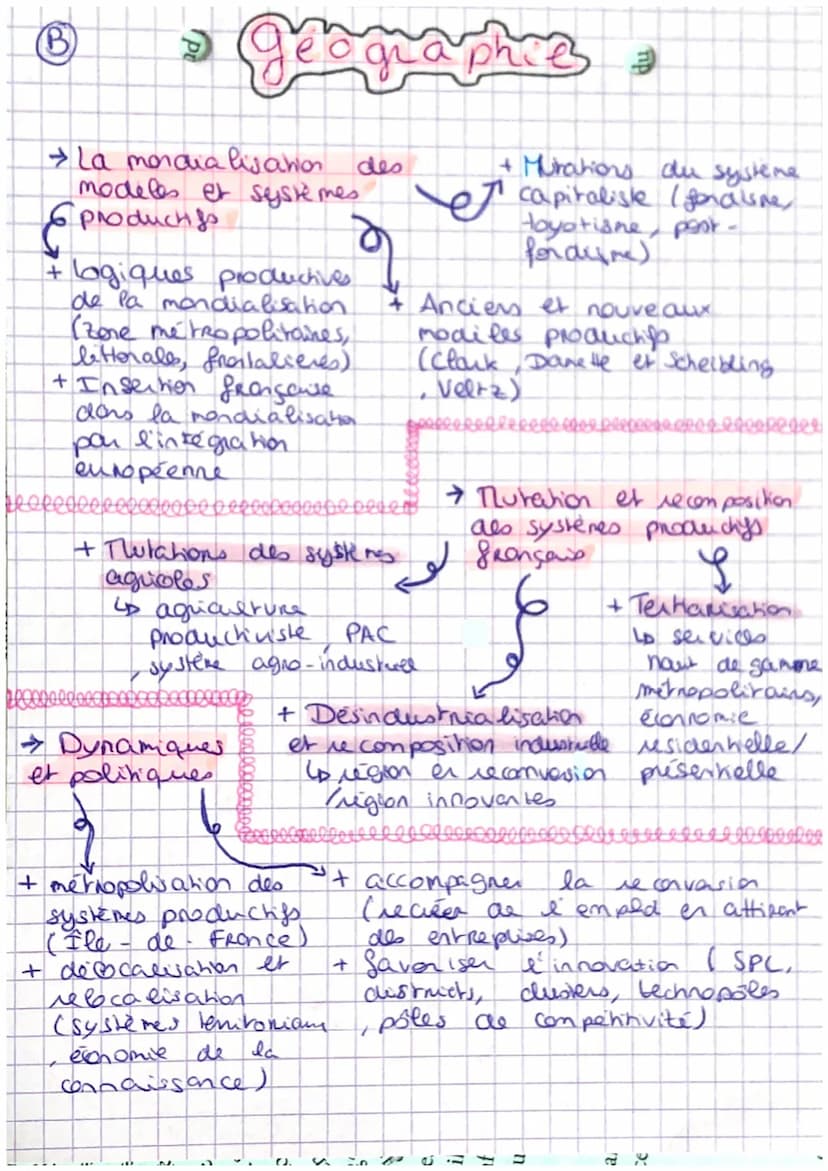 B
Géographie
→ La mondialisation des
modèles et systèmes
productifs
+ Mutations du système
capitaliste (fordisme,
toyotisme, post-
fordisme)
+ logiques productives
de la mondialisation
(zone métropolitaines,
littorales, frontalières)
+ Insertion française
dans la mondialisation
par l'intégration
européenne
+ Anciens et nouveaux
modèles productifs
(Clark, Danelle et Scheibling
, Veltz)
→ Mutation et recomposition
des systèmes productifs
français
+ Mutations des systèmes
agricoles
↳ agriculture
productiviste, PAC
, système agro-industriel
+ Tertiarisation
↳ services
haut de gamme
métropolitains,
économie
résidentielle/
présentielle
+ Désindustrialisation
et recomposition industrielle
↳ région en reconversion
/région innovantes
→ Dynamiques
et politiques
+ métropolisation des
systèmes productifs
(Île-de-France)
+ délocalisation et
relocalisation
(systèmes territoriaux
, économie de la
connaissance)
+ accompagner la reconversion
(recréer de l'emploi en attirant
des entreprises)
+ favoriser l'innovation (SPL,
districts, clusters, technopôles
, pôles de compétitivité)